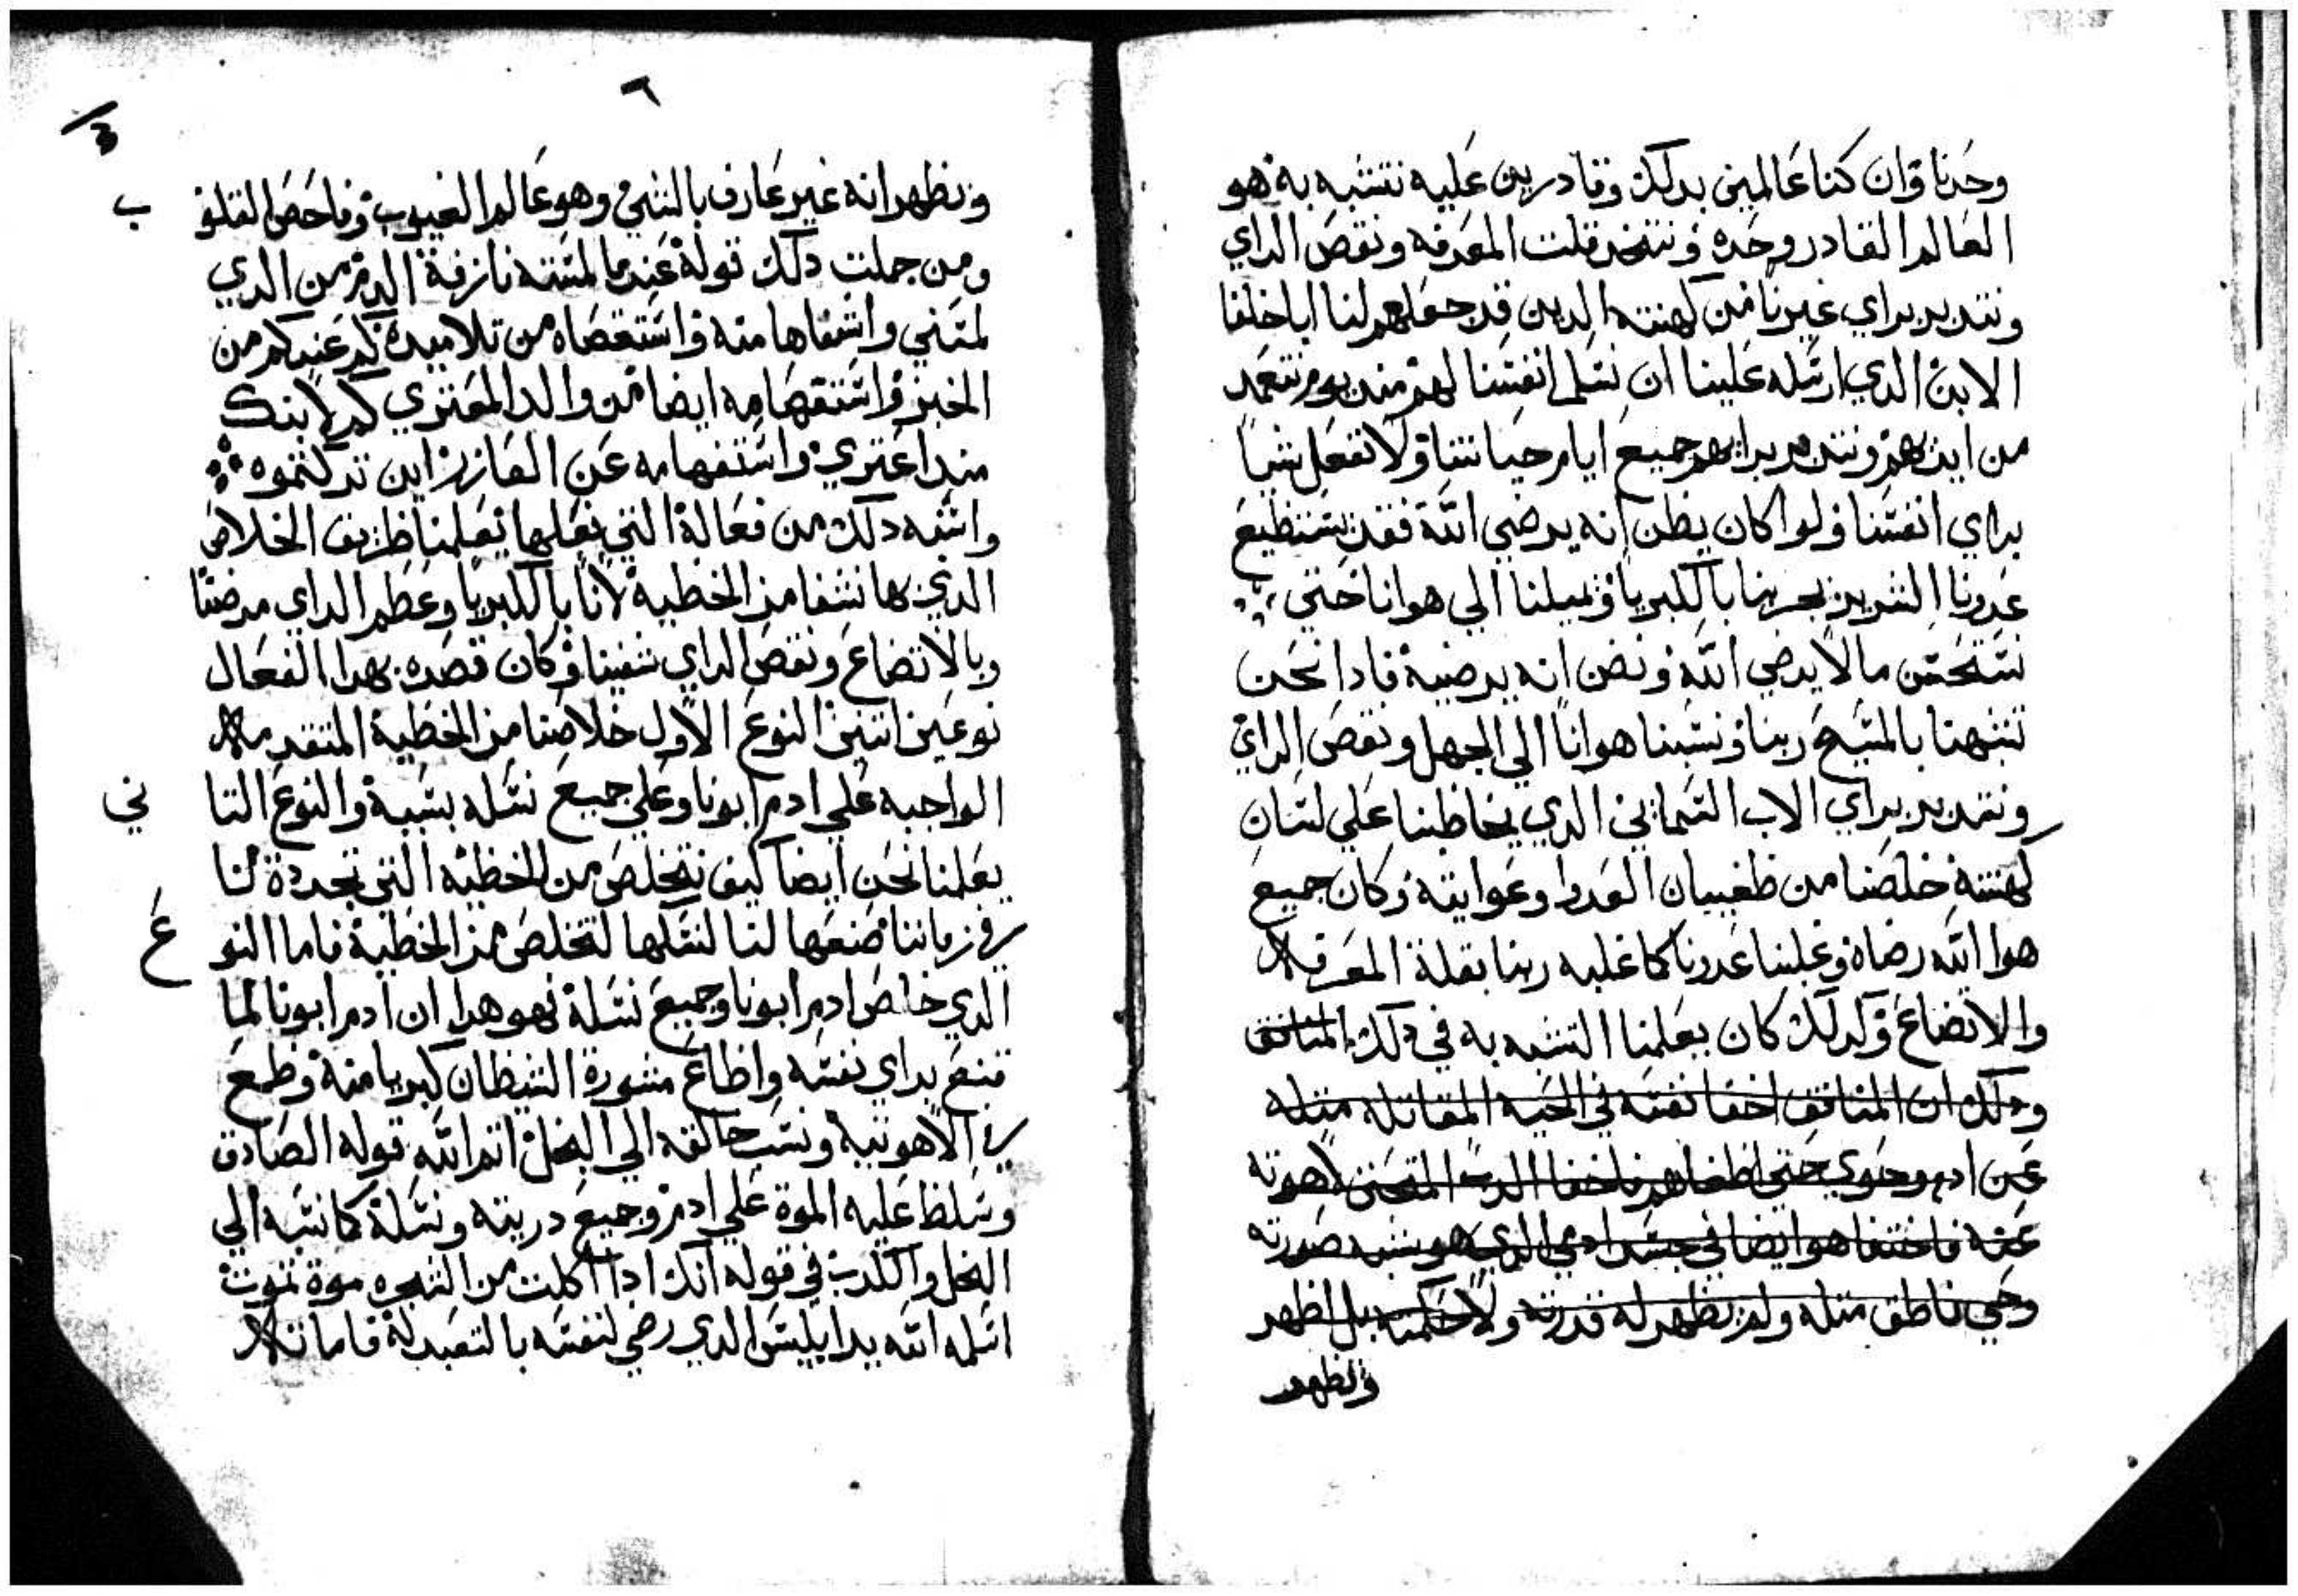 وحدنا وان كنا عالمين بدلك وقادرين عليه نتشبه به هو
العالم القادر وحده ونتخد قلت المعرفه ونقص الراي
ونتدبر براي غيرنا من كهنته الدين قد جعلهم لنا ابا خلفا
الابن الدي ارسله علينا ان نسلم انفسنا لهم منديوم نتعمد
من ايديهم ونتدبر برايهم جميع ايام حياتنا ولا نفعل شيا
براي انفسنا ولو كان يظن انه يرضي الله فقد يستطيع
عدونا الشرير يجربنا بالكبريا ويميلنا الي هوانا حتي
نستحسن ما لا يرضي الله ونضن انه يرضيه فادا نحن
تشبهنا بالمسيح ربنا ونسبنا هوانا الي الجهل ونقص الراي
ونتدبر براي الاب السماىي الدي يخاطبنا علي لسان
كهنته خلصنا من طغييان العدوا وعوايقه وكان جميع
هوا الله رضاه وغلبنا عدونا كما غلبه ربنا بقلة المعرفه
والاتضاع وكدلك كان يعلمنا التشبه به في دلك المنافق
ودلك ان المنافق اخفا نفسه في الحيه المقاتله مثله
عن ادم وحوي حتي اطغاهم فاخفا الرب المتحنن لاهوته
عنه فاختفا هو ايضا في جسد ادمي الدي هو شبه صورته
وحي ناطق مثله ولم يظهر له قدرته ولا حكمته بل اظهر
ويظهر
٦
ويظهر انه غير عارف بالشي وهو عالم الغيوب وفاحص القلو
ب
ومن جملت دلك قوله عندما لمسته نازفة الدم من الدي
لمسني واشفاها منه واستقصاه من تلاميده كم عندكم من
الخبز واستفهامه ايضا من والد المعتري كم لابنك
مند اعتري واستفهامه عن العازر اين تركتموه
واشبه دلك من فعاله التي يفعلها يعلمنا طريق الخلاص
الدي بها نشفا من الخطيه لانا بالكبريا وعظم الراي مرضنا
وبالاتضاع ونقص الراي شفينا وكان قصده بهدا الفعال
نوعين اتنين النوع الاول خلاصنا من الخطية المتقدمه
الواجبه علي ادم ابونا وعلي جميع نسله بسببه والنوع التا
ني
يعلمنا نحن ايضا كيف نتخلص من الخطيه التي تجددة لنا
في زماننا صنعها لنا لنسلها لتخلص من الخطية فاما النو
ع
الدي خلص ادم ابونا وجميع نسله فهو هدا ان ادم ابونا لما
قنع براي نفسه واطاع مشورة الشيطان كبريا منه وطمع
في الاهوتيه ونسب خالقه الي البخل اتم الله قوله الصادق
وسلط عليه الموة علي ادم وجميع دريته ونسلة كما نسبه الي
البخل والكدب في قوله انك ادا اكلت من الشجره موة تموت
اسلمه الله بيد ابليس الدي رضي لنفسه بالتعبد له فاما تلا